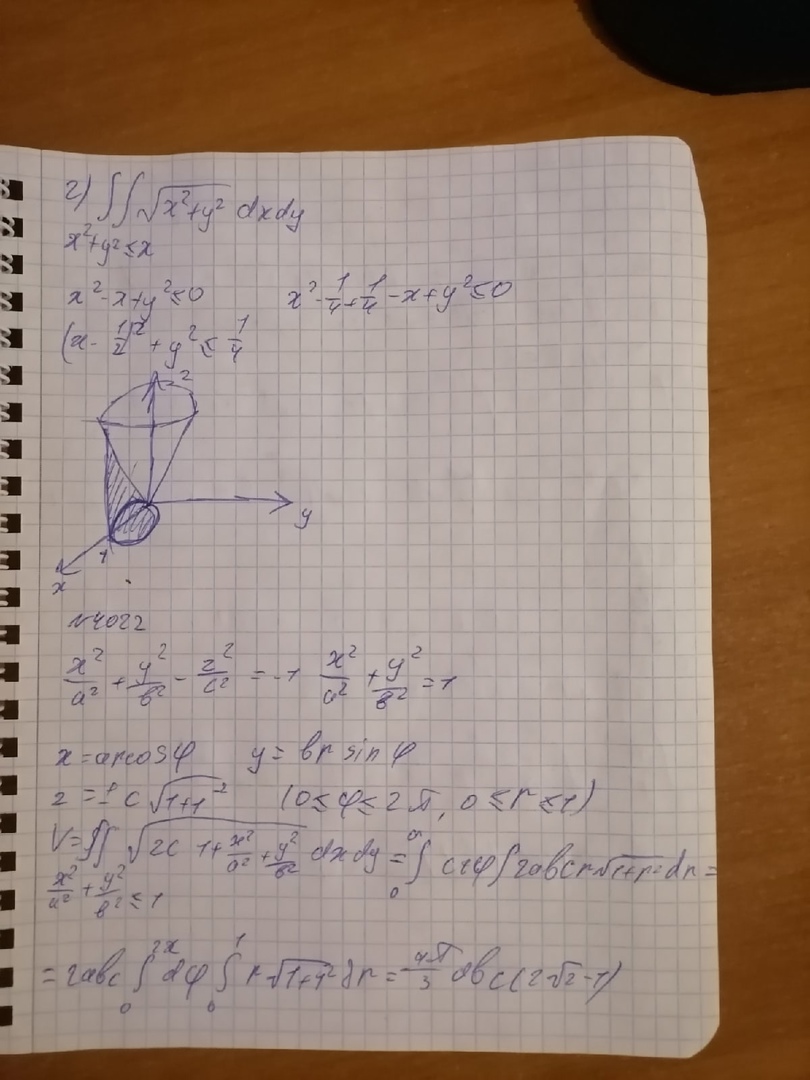 2) ∬ √(x²+y²) dxdy
x²+y² ≤ x
x² - x + y² ≤ 0    x² - 1/4 + 1/4 - x + y² ≤ 0
(x - 1/2)² + y² ≤ 1/4
z
y
1
x
№4022
x²/a² + y²/b² - z²/c² = -1    x²/a² + y²/b² = 1
x = arcosφ    y = br sinφ
z = ± c √(1+r²)    (0 ≤ φ ≤ 2π, 0 ≤ r ≤ 1)
V = ∬ √(2c 1 + x²/a² + y²/b²) dxdy = ∫ ∫ 2abcr√(1+r²) dr =
x²/a² + y²/b² ≤ 1
= 2abc ∫₀^2π dφ ∫₀^1 r √(1+r²) dr = 4π/3 abc (2√2 - 1)